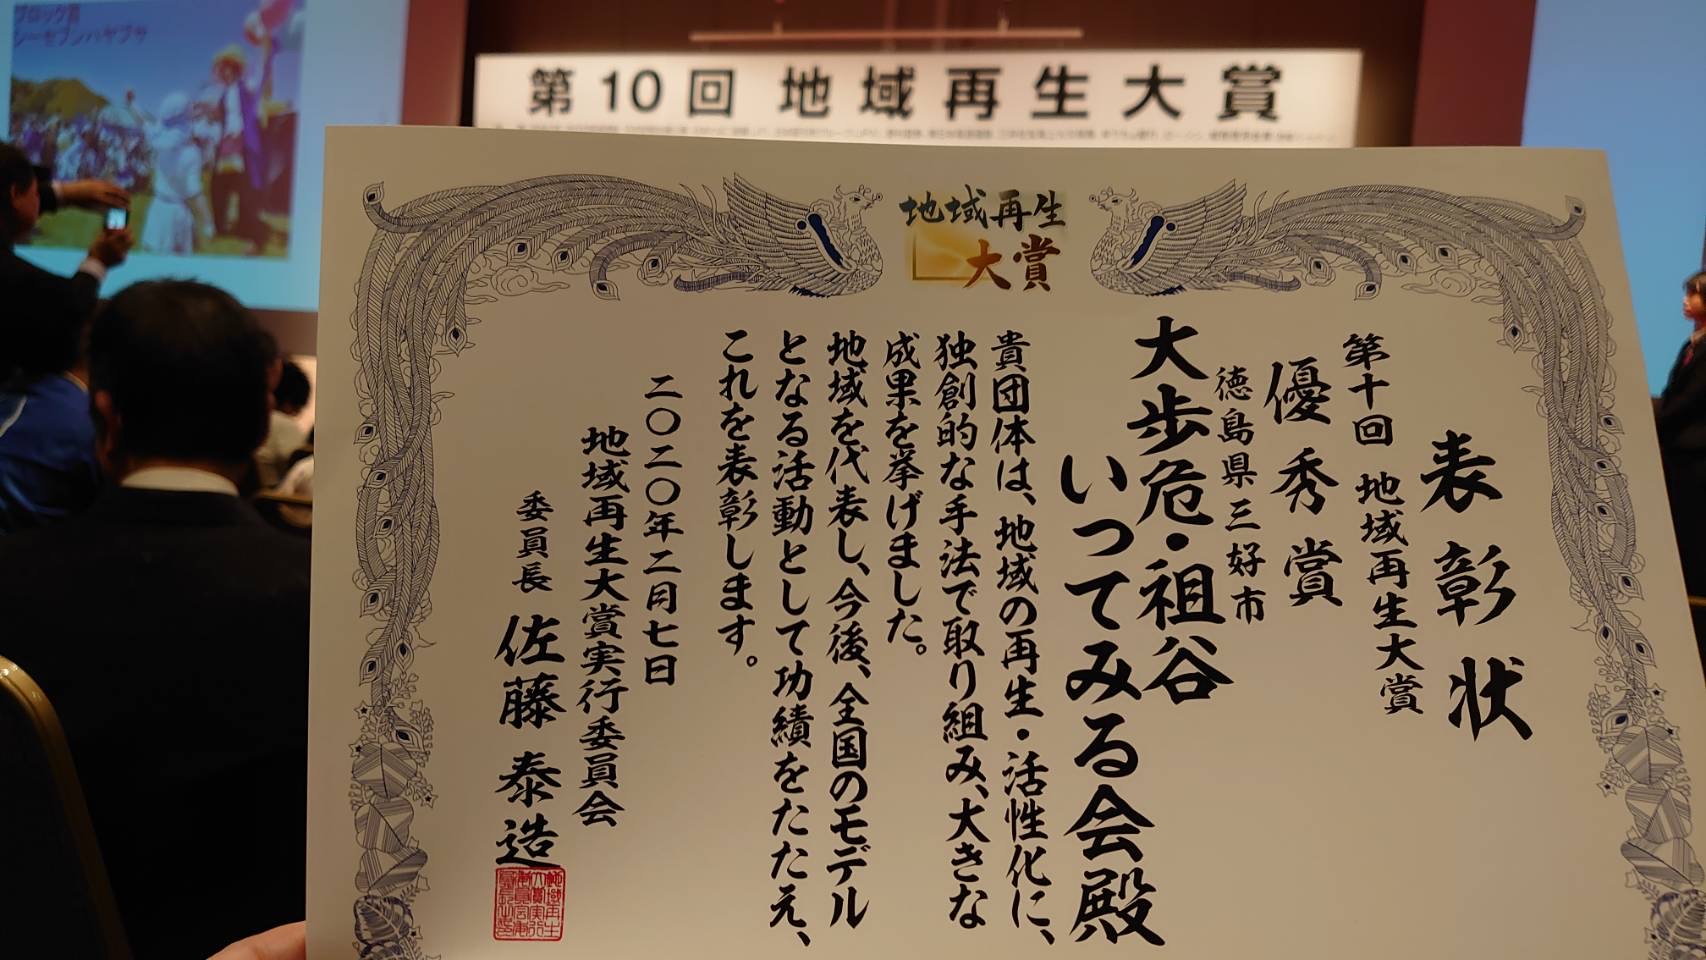 ブロック賞
シーセブンハヤブサ
第10回 地域再生大賞
地域再生
大賞
表彰状
第十回 地域再生大賞
優秀賞
徳島県三好市
大歩危・祖谷
いってみる会殿
貴団体は、地域の再生・活性化に、
独創的な手法で取り組み、大きな
成果を挙げました。
地域を代表し、今後、全国のモデル
となる活動として功績をたたえ、
これを表彰します。
二〇二〇年二月七日
地域再生大賞実行委員会
委員長 佐藤泰造